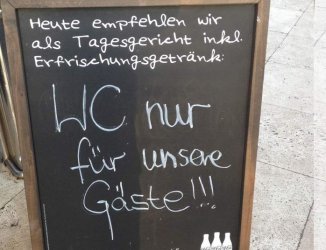 Heute empfehlen wir
als Tagesgericht inkl.
Erfrischungsgetränk:
WC nur
für unsere
Gäste!!!